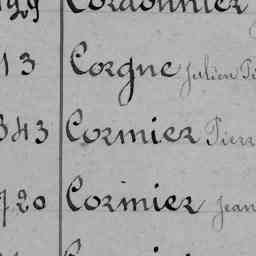 Cordonnier
13 Corgne Julien
343 Cormier Pierr
720 Cormier Jean